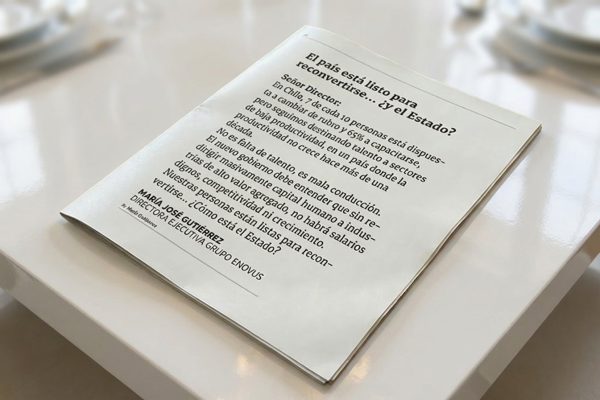 El país está listo para
reconvertirse... ¿y el Estado?
Señor Director:
En Chile, 7 de cada 10 personas está dispues-
ta a cambiar de rubro y 65% a capacitarse,
pero seguimos destinando talento a sectores
de baja productividad, en un país donde la
productividad no crece hace más de una
década.
No es falta de talento, es mala conducción.
El nuevo gobierno debe entender que sin re-
dirigir masivamente capital humano a indus-
trias de alto valor agregado, no habrá salarios
dignos, competitividad ni crecimiento.
Nuestras personas están listas para recon-
vertirse... ¿Cómo está el Estado?
MARÍA JOSÉ GUTIÉRREZ
DIRECTORA EJECUTIVA GRUPO ENOVUS